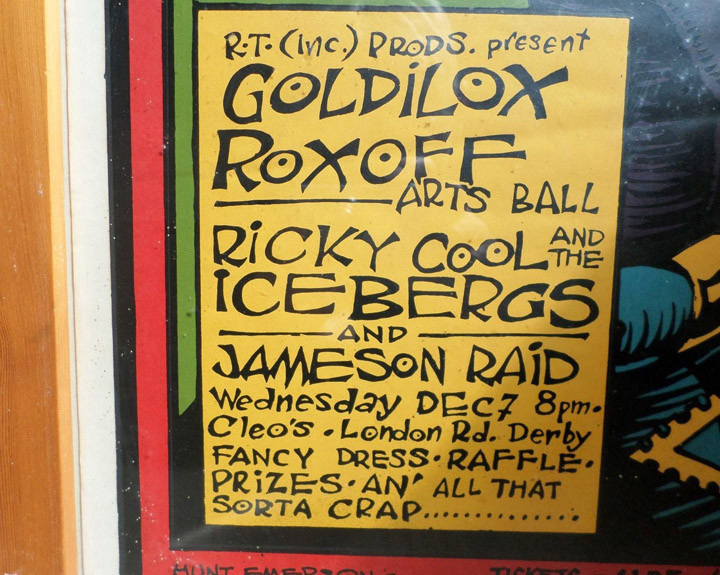 R.T. (Inc.) PRODS. present
GOLDiLOX
ROXOFF
ARTS BALL
RiCKY COOL AND THE
iCEBERGS
AND
JAMESON RAiD
Wednesday DEC 7 8pm.
Cleo's . London Rd. Derby
FANCY DRESS . RAFFLE .
PRIZES . AN' ALL THAT
SORTA CRAP..............
HUNT EMERSON
TICKETS